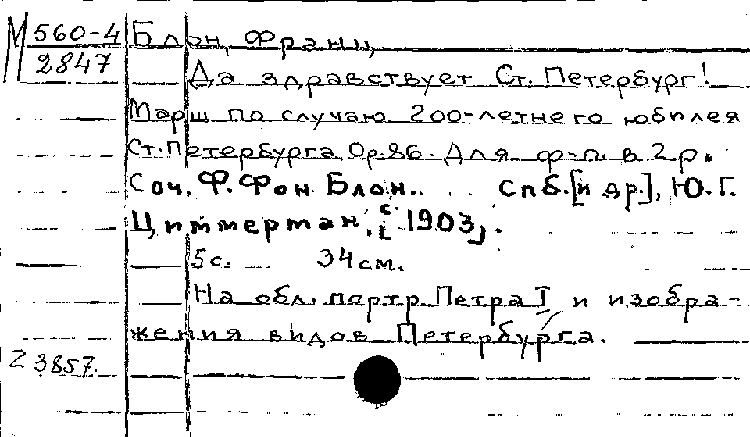 М 560-4
2847
Блон, Франц,
Да здравствует Ст. Петербург!
Марш по случаю 200-летнего юбилея
Ст.Петербурга. Op.86. Для ф-п. в 2 р.
Соч. Ф. Фон Блон. . Спб.[и др.], Ю.Г.
Циммерман, [с. 1903].
5 с. 34 см.
На обл. портр. Петра I и изобра-
жения видов Петербурга.
Z 3857.